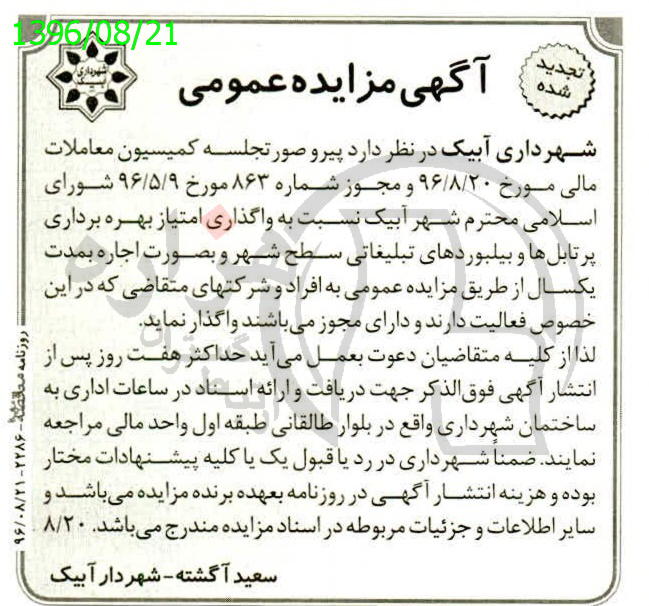 1396/08/21
شهرداری
آبیک
تجدید
شده
آگهی مزایده عمومی
شهرداری آبیک در نظر دارد پیرو صورتجلسه کمیسیون معاملات
مالی مورخ ۹۶/۸/۲۰ و مجوز شماره ۸۶۳ مورخ ۹۶/۵/۹ شورای
اسلامی محترم شهر آبیک نسبت به واگذاری امتیاز بهره برداری
پرتابل‌ها و بیلبوردهای تبلیغاتی سطح شهر و بصورت اجاره بمدت
یکسال از طریق مزایده عمومی به افراد و شرکتهای متقاضی که در این
خصوص فعالیت دارند و دارای مجوز می‌باشند واگذار نماید.
لذا از کلیه متقاضیان دعوت بعمل می‌آید حداکثر هفت روز پس از
انتشار آگهی فوق‌الذکر جهت دریافت و ارائه اسناد در ساعات اداری به
ساختمان شهرداری واقع در بلوار طالقانی طبقه اول واحد مالی مراجعه
نمایند. ضمناً شهرداری در رد یا قبول یک یا کلیه پیشنهادات مختار
بوده و هزینه انتشار آگهی در روزنامه بعهده برنده مزایده می‌باشد و
سایر اطلاعات و جزئیات مربوطه در اسناد مزایده مندرج می‌باشد. ۸/۲۰
سعید آگشته - شهردار آبیک
روزنامه - ۲۲۸۶ - ۹۶/۰۸/۲۱
هزاره